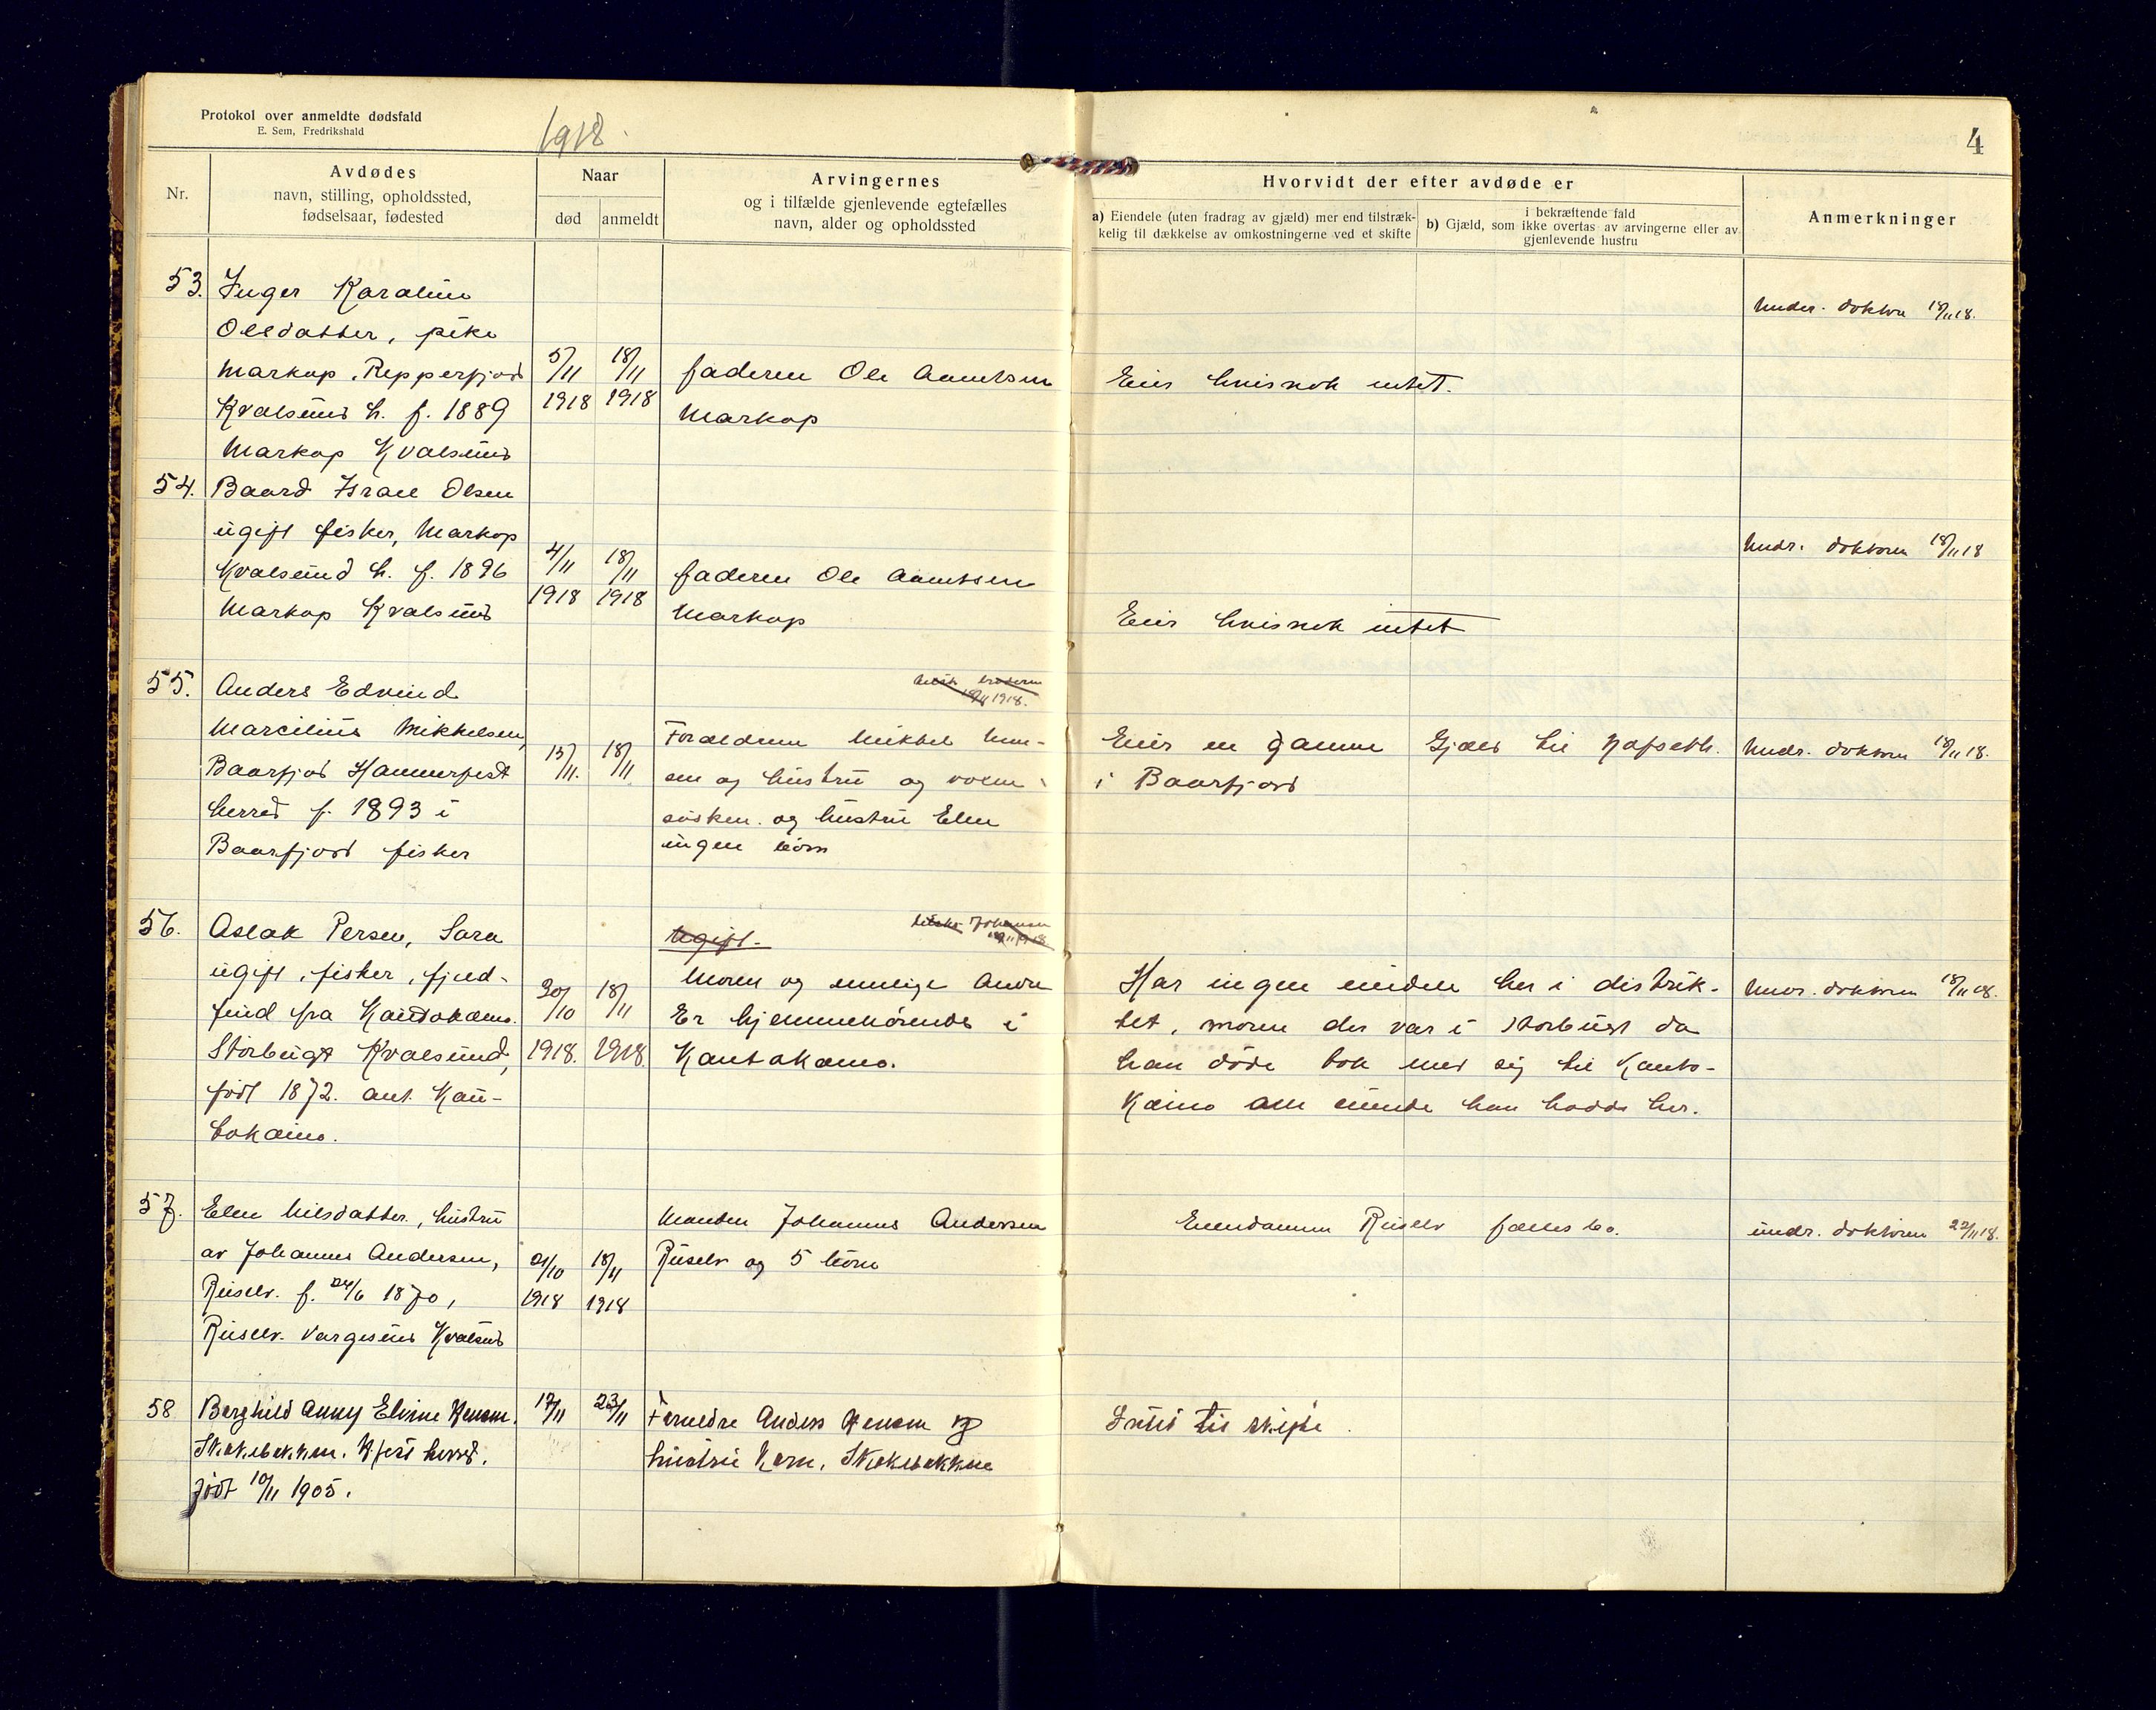 Protokol over anmeldte dødsfald
E. Sem, Fredrikshald
1918.
4
Nr.
Avdødes
navn, stilling, opholdssted,
fødselsaar, fødested
Naar
død
anmeldt
Arvingernes
og i tilfælde gjenlevende egtefælles
navn, alder og opholdssted
Hvorvidt der efter avdøde er
a) Eiendele (uten fradrag av gjæld) mer end tilstræk-
kelig til dækkelse av omkostningerne ved et skifte
i bekræftende fald
b) Gjæld, som ikke overtas av arvingerne eller av
gjenlevende hustru
Anmerkninger
53.
Inger Karoline
Olsdatter, pike
Markop, Repperfjord
Kvalsund h. f. 1889
Markop Kvalsund
5/11
1918
18/11
1918
faderen Ole Aamtsen
Markop
Eier hvisnok intet.
Under. doktoren 18/11 18.
54.
Baard Israel Olsen
ugift fisker, Markop
Kvalsund h. f. 1896
Markop Kvalsund
4/11
1918
18/11
1918
faderen Ole Aamtsen
Markop
Eier hvisnok intet
Undr. doktoren 18/11 18
55.
Anders Edvind
Marcilius Mikkelsen,
Baarfjord Hammerfest
herred f. 1893 i
Baarfjord fisker
15/11.
18/11
broderen
18/11 1918.
Forældrene Mikkel
sen og hustru og
søsken. og hustru Elen
ingen børn
Eier en gamme
i Baarfjord
Gjæld til
Undr. doktoren 18/11 18.
56.
Aslak Persen, Sara
ugift, fisker, fjeld-
find fra Kautokæino.
Storbugt Kvalsund,
født 1872. ant. Kau-
tokæino.
30/10
1918.
18/11
1918.
Johansen
18/11 1918
Ugift.
Moren og
Er hjemmehørende i
Kautokæino.
Har ingen eiendele her i distrik-
tet, moren der var i Storbugt da
han døde tok med sig til Kauto-
kæino alle han hadde her.
Undr. doktoren 18/11 18.
57.
Elen Nilsdatter, hustru
av Johannes Andersen,
Ruselv. f. 24/6 1870,
Ruselv. Vargsund Kvalsund
21/10
1918
18/11
1918
Manden Johannes Andersen
Ruselv og 5 børn
Eiendommen Ruselv fælles bo.
undr. doktoren 22/11 18.
58
Borghild Anny Elvine
H.fest herred.
født 10/11 1905.
17/11
23/11
Forældre Anders og
hustru Karn,
Intet til skifte.